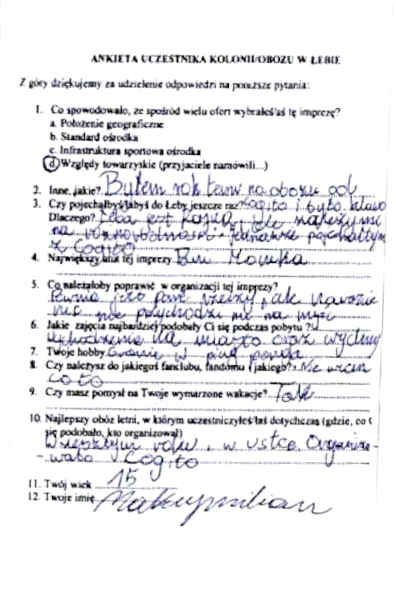 ANKIETA UCZESTNIKA KOLONII/OBOZU W ŁEBIE
Z góry dziękujemy za udzielenie odpowiedzi na poniższe pytania:
1. Co spowodowało, że spośród wielu ofert wybrałeś/aś tę imprezę?
a. Położenie geograficzne
b. Standard ośrodka
c. Infrastruktura sportowa ośrodka
d Względy towarzyskie (przyjaciele namówili...)
2. Inne, jakie? Byłem rok temu na obozie
3. Czy pojechałbyś/łabyś do Łeby jeszcze raz? Cogito i było
Dlaczego? Łeba jest fajna, ale
na
z Cogito
4. Największy atut tej imprezy
5. Co należałoby poprawić w organizacji tej imprezy?
Pewnie jest parę rzeczy, ale narazie
nic nie przychodzi mi na myśl
6. Jakie zajęcia najbardziej podobały Ci się podczas pobytu?
wychodzenie na miasto oraz wydmy
7. Twoje hobby Granie w
8. Czy należysz do jakiegoś fanclubu, fandomu (jakiego)? Nie wiem
co to
9. Czy masz pomysł na Twoje wymarzone wakacje? Tak
10. Najlepszy obóz letni, w którym uczestniczyłeś/łaś dotychczas (gdzie, co
się podobało, kto organizował)
W zeszłym roku, w Ustce. Organizo-
-wało Cogito
11. Twój wiek 15
12. Twoje imię Maksymilian